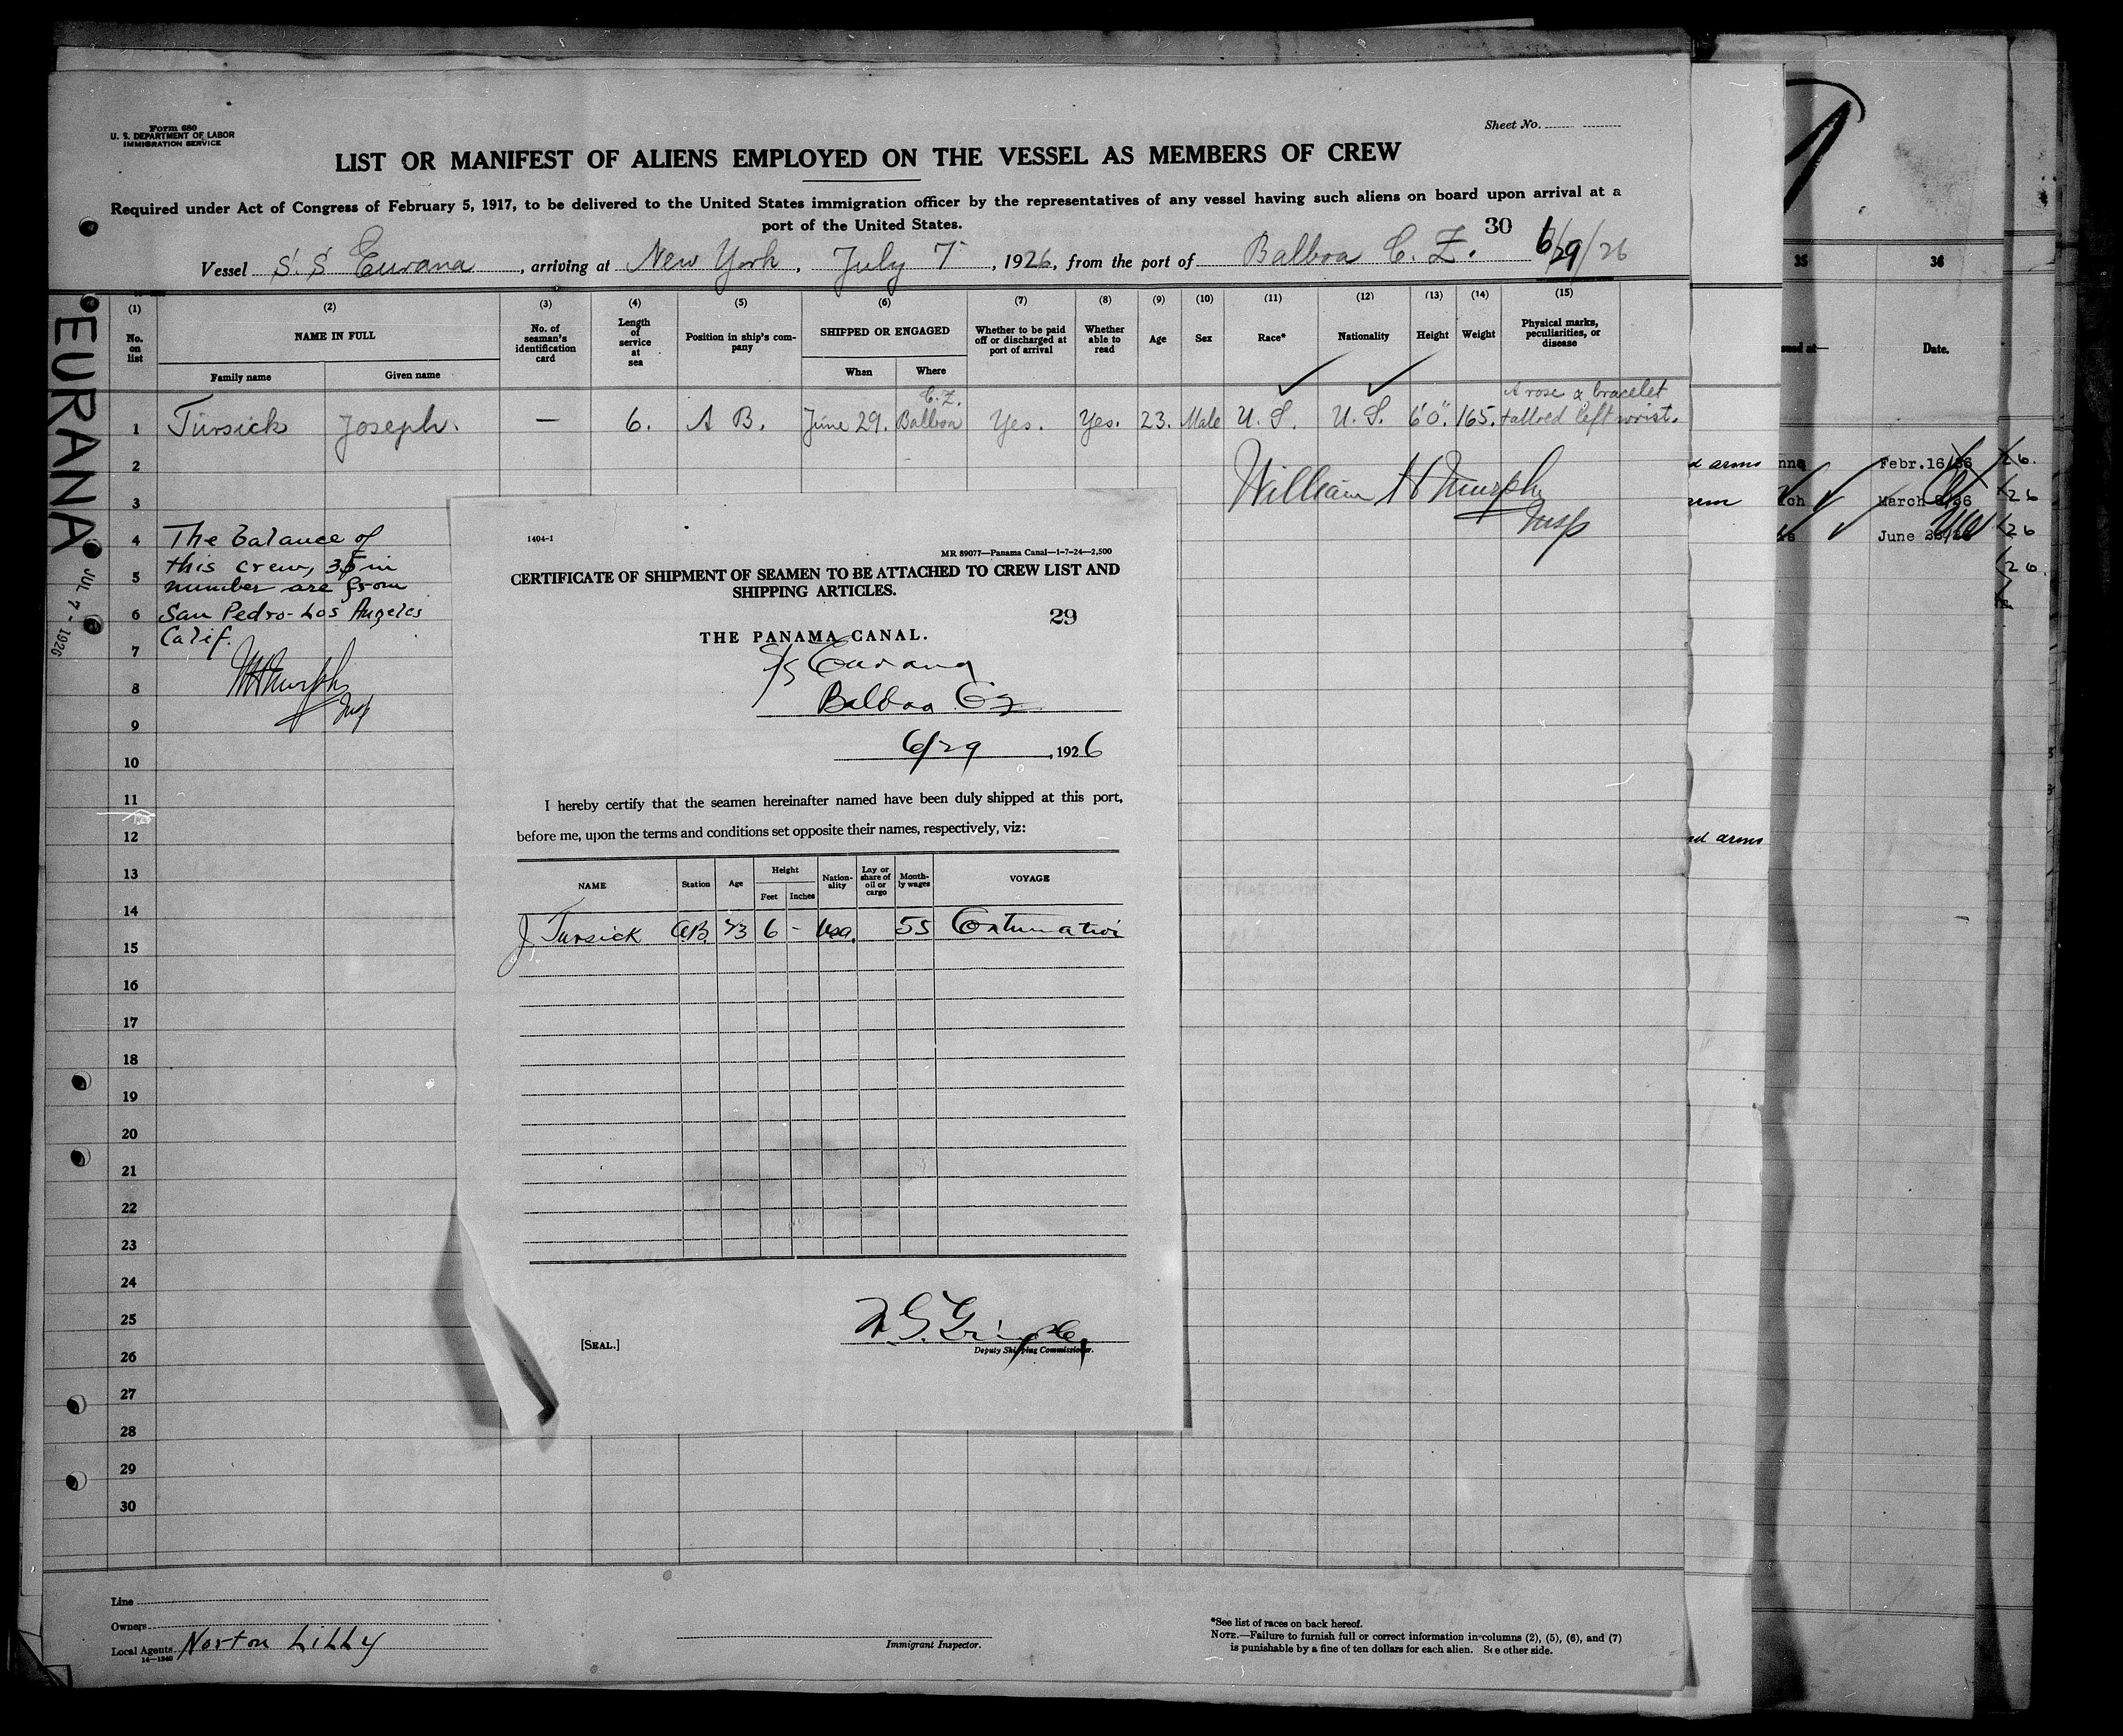 Form 680
U. S. DEPARTMENT OF LABOR
IMMIGRATION SERVICE
Sheet No.
LIST OR MANIFEST OF ALIENS EMPLOYED ON THE VESSEL AS MEMBERS OF CREW
Required under Act of Congress of February 5, 1917, to be delivered to the United States immigration officer by the representatives of any vessel having such aliens on board upon arrival at a
port of the United States.
30
Vessel S. S Eurana, arriving at New York, July 7, 1926, from the port of Balboa C. Z. 6/29/26
(1) (2) (3) (4) (5) (6) (7) (8) (9) (10) (11) (12) (13) (14) (15)
No. on list
NAME IN FULL
Family name
Given name
No. of seaman's identification card
Length of service at sea
Position in ship's company
SHIPPED OR ENGAGED
When
Where
Whether to be paid off or discharged at port of arrival
Whether able to read
Age
Sex
Race*
Nationality
Height
Weight
Physical marks, peculiarities, or disease
1 Tursick Joseph. — 6. A B. June 29. Balboa C.Z. Yes. Yes. 23. Male U. S. U. S. 6'0" 165. A rose & bracelet tattoed left wrist.
William H Murphy
Insp
2
3
4
5
6
7
8
9
10
11
12
13
14
15
16
17
18
19
20
21
22
23
24
25
26
27
28
29
30
The balance of
this crew, 35 in
number are from
San Pedro-Los Angeles
Calif.
WHMurphy
Insp
EURANA
JUL 7 - 1926
1404-1
MR 89077—Panama Canal—1-7-24—2,500
CERTIFICATE OF SHIPMENT OF SEAMEN TO BE ATTACHED TO CREW LIST AND
SHIPPING ARTICLES.
29
THE PANAMA CANAL.
S/S Eurana
Balboa Cz
6/29, 1926
I hereby certify that the seamen hereinafter named have been duly shipped at this port,
before me, upon the terms and conditions set opposite their names, respectively, viz:
NAME
Station
Age
Height
Feet
Inches
Nationality
Lay or share of oil or cargo
Monthly wages
VOYAGE
J. Tursick A.B. 23 6 - Usa. 55
[SEAL.]
Deputy Shipping Commissioner.
Line
Owners
Local Agents Norton Lilly
14—1240
Immigrant Inspector.
*See list of races on back hereof.
NOTE.—Failure to furnish full or correct information in columns (2), (5), (6), and (7)
is punishable by a fine of ten dollars for each alien. See other side.
35
36
Date.
d arms
Febr.16/26
arm
March
June
nd arms